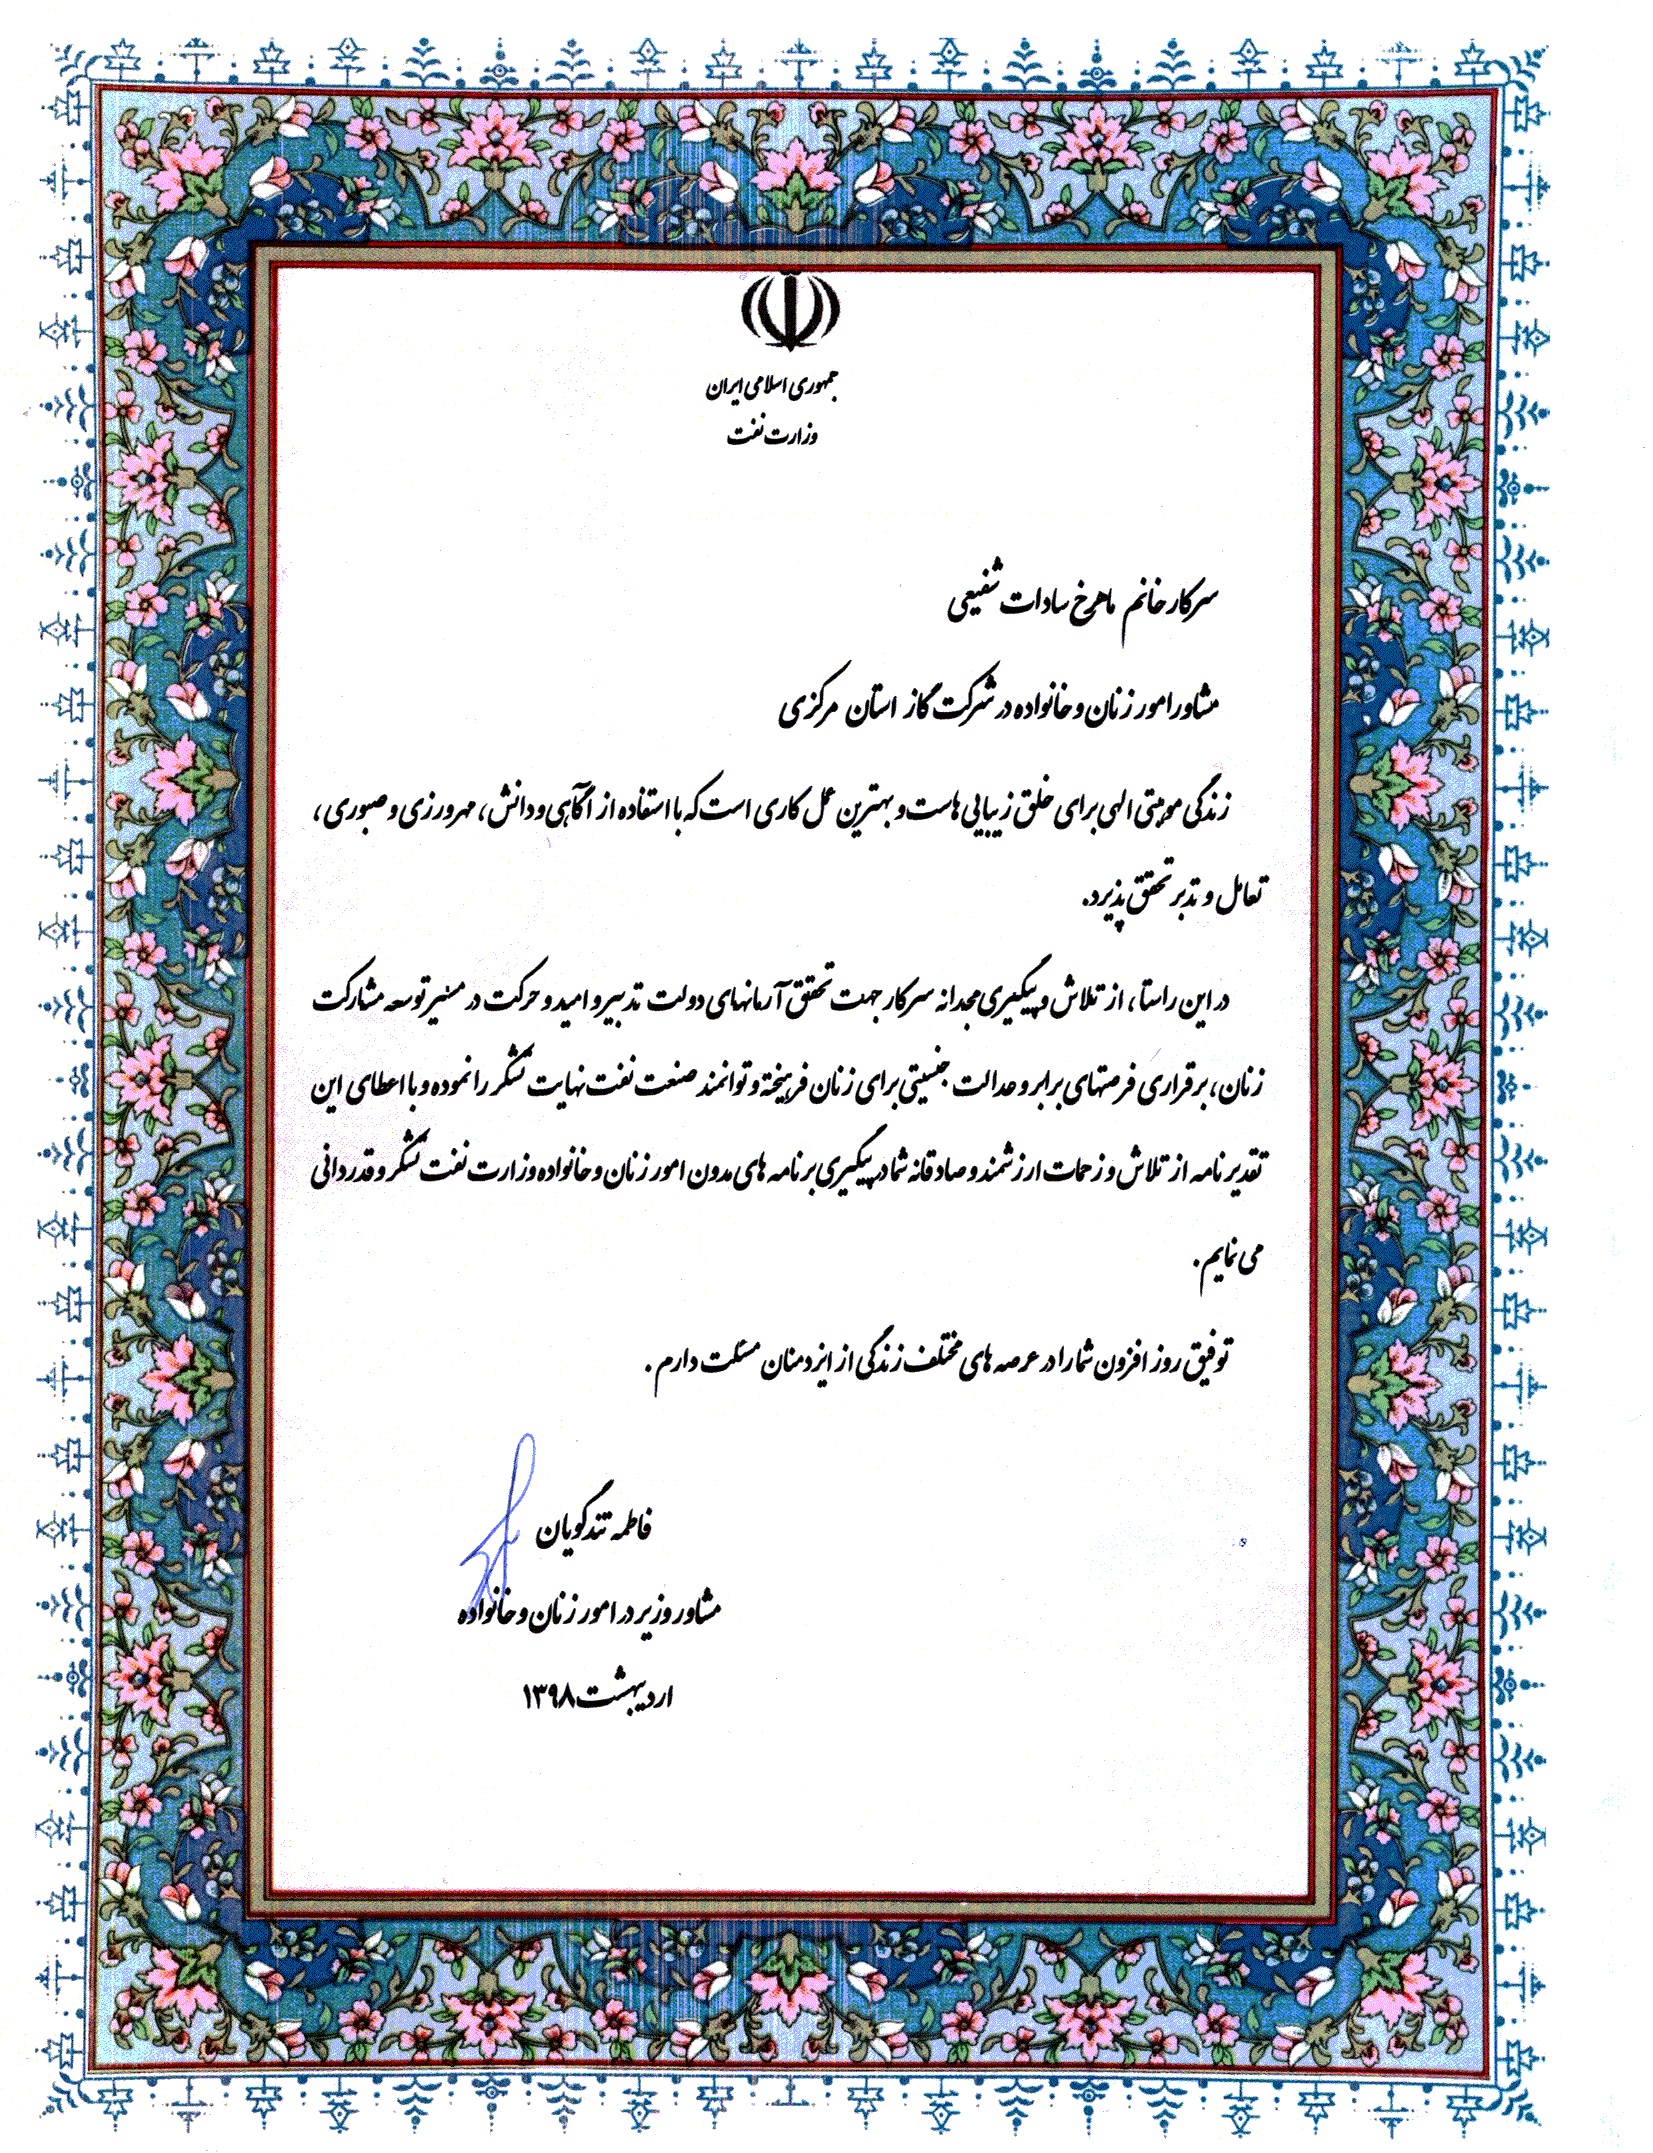 جمهوری اسلامی ایران
وزارت نفت
سرکار خانم ماهرخ سادات شفیعی
مشاور امور زنان و خانواده در شرکت گاز استان مرکزی
زندگی موهبتی الهی برای خلق زیبایی هاست و بهترین عمل کاری است که با استفاده از آگاهی و دانش، مهرورزی و صبوری،
تعامل و تدبر تحقق پذیرد.
در این راستا، از تلاش و پیگیری مجدانه سرکار جهت تحقق آرمانهای دولت تدبیر و امید و حرکت در مسیر توسعه مشارکت
زنان، برقراری فرصتهای برابر و عدالت جنسیتی برای زنان فرهیخته و توانمند صنعت نفت نهایت تشکر را نموده و با اعطای این
تقدیر نامه از تلاش و زحمات ارزشمند و صادقانه شما در پیگیری برنامه های مدون امور زنان و خانواده وزارت نفت تشکر و قدردانی
می نمایم.
توفیق روز افزون شما را در عرصه های مختلف زندگی از ایزد منان مسئلت دارم.
فاطمه تندگویان
مشاور وزیر در امور زنان و خانواده
اردیبهشت ۱۳۹۸